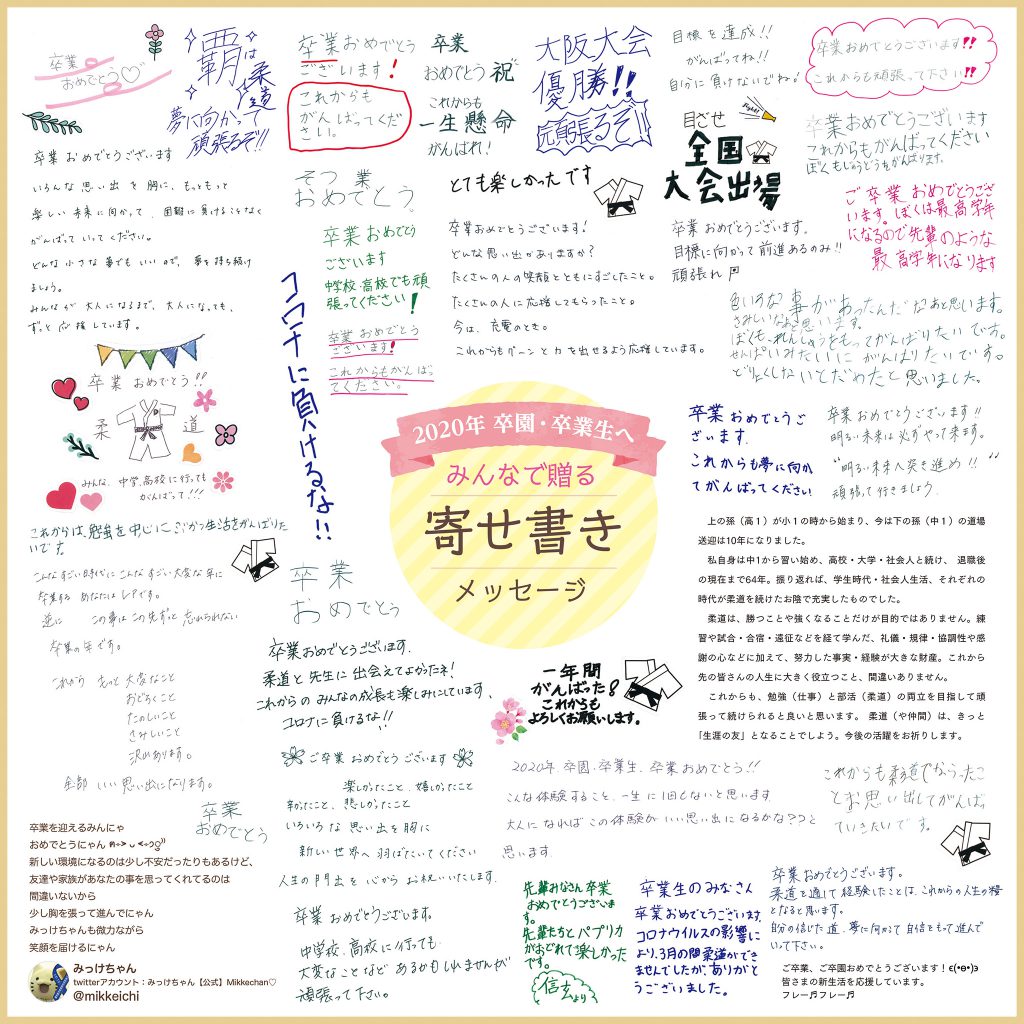 卒業
おめでとう♡
覇は柔道
夢に向かって
頑張るぞ!!!
卒業おめでとう
ございます!
これからも
がんばってくだ
さい。
卒業
おめでとう祝
これからも
一生懸命
がんばれ!
大阪大会
優勝!!
頑張るぞ!!
目標を達成!!
がんばってね!!
自分に負けないでね。
卒業おめでとうございます!!
これからも頑張って下さい!!
卒業おめでとうございます
いろんな思い出を胸に、もっともっと
楽しい未来に向かって、困難に負けることなく
がんばっていってください。
どんな小さな事でもいいので、夢を持ち続け
ましょう。
みんなが大人になるまで、大人になっても、
ずっと応援しています。
そつ業
おめでとう
とても楽しかったです
目ざせ
Fight!
全国
大会出場
卒業おめでとうございます
これからもがんばってください
ぼくもじゅうどうもがんばります。
卒業おめでとう
ございます
中学校、高校でも頑
張ってください!
卒業おめでとうございます!
どんな思い出がありますか?
たくさんの人の笑顔とともにすごしたこと。
たくさんの人に応援してもらったこと。
今は、充電のとき。
これからもグーンと力を出せるよう応援しています。
卒業おめでとうございます。
目標に向かって前進あるのみ!!
頑張れ
ご卒業おめでとうござ
います。ぼくは最高学年
になるので先輩のような
最高学年になります
コロナに負けるな!!
卒業おめでとう
ございます!
これからもがんばっ
てください。
色いろな事があったんだなあと思います。
さみしいなあと思います。
ぼくも、れんしゅうをもってがんばりたいです。
せんぱいみたいにがんばりたいです。
どりょくしないとだめだと思いました。
卒業おめでとう!!
柔道
みんな、中学、高校に行っても
がんばって!!!
2020年 卒園・卒業生へ
みんなで贈る
寄せ書き
メッセージ
卒業おめでとうご
ざいます。
これからも夢に向か
てがんばってください!
卒業おめでとうございます!!
明るい未来は必ずやって来ます。
"明るい未来へ突き進め!!"
頑張って行きましょう。
これからは、勉強を中心に
生活をがんばりた
いです。
こんなすごい時代にこんなすごい大変な年に
卒業するあなたはレアです。
逆に この事はこの先ずっと忘れられない
卒業の年です。
これからもっと大変なこと
おどろくこと
たのしいこと
さみしいこと
沢山あります。
全部いい思い出になります。
卒業
おめでとう
卒業おめでとうございます。
柔道と先生に出会えてよかったネ!
これからのみんなの成長も楽しみにしています。
コロナに負けるな!!
上の孫（高1）が小1の時から始まり、今は下の孫（中1）の道場
送迎は10年になりました。
私自身は中1から習い始め、高校・大学・社会人と続け、退職後
の現在まで64年。振り返れば、学生時代・社会人生活、それぞれの
時代が柔道を続けたお陰で充実したものでした。
柔道は、勝つことや強くなることだけが目的ではありません。練
習や試合・合宿・遠征などを経て学んだ、礼儀・規律・協調性や感
謝の心などに加えて、努力した事実・経験が大きな財産。これから
先の皆さんの人生に大きく役立つこと、間違いありません。
これからも、勉強（仕事）と部活（柔道）の両立を目指して頑
張って続けられると良いと思います。 柔道（や仲間）は、きっと
「生涯の友」となることでしょう。今後の活躍をお祈りします。
一年間
がんばった!
これからも
よろしくお願いします。
ご卒業おめでとうございます
楽しかったこと、嬉しかったこと
辛かったこと、悲しかったこと
いろいろな思い出を胸に
新しい世界へ羽ばたいてください
人生の門出を心からお祝いいたします。
2020年、卒園・卒業生、卒業おめでとう!!
こんな体験すること、一生に1回もないと思います
大人になればこの体験がいい思い出になるかな??と
思います
これからも柔道でならったこ
とお思い出してがんばっ
ていきたいです。
卒業
おめでとう
卒業を迎えるみんにゃ
おめでとうにゃん
新しい環境になるのは少し不安だったりもあるけど、
友達や家族があなたの事を思ってくれてるのは
間違いないから
少し胸を張って進んでにゃん
みっけちゃんも微力ながら
笑顔を届けるにゃん
みっけちゃん
twitterアカウント：みっけちゃん【公式】Mikkechan♡
@mikkeichi
卒業おめでとうございます。
中学校、高校に行っても
大変なことなどあるかもしれませんが
頑張って下さい。
先輩みなさん卒業
おめでとうございま
す。
先輩たちとパプリカ
がおどれて楽しかった
です。
信玄より
卒業生のみなさん
卒業おめでとうございます。
コロナウイルスの影響に
より、3月の間柔道ができ
ませんでしたが、ありがと
うございました。
卒業おめでとうございます。
柔道を通して経験したことは、これからの人生の糧
となると思います。
自分の信じた道、夢に向かって自信をもって進んで
いって下さい。
ご卒業、ご卒園おめでとうございます！ϵ(•Θ•)϶
皆さまの新生活を応援しています。
フレー♬フレー♬